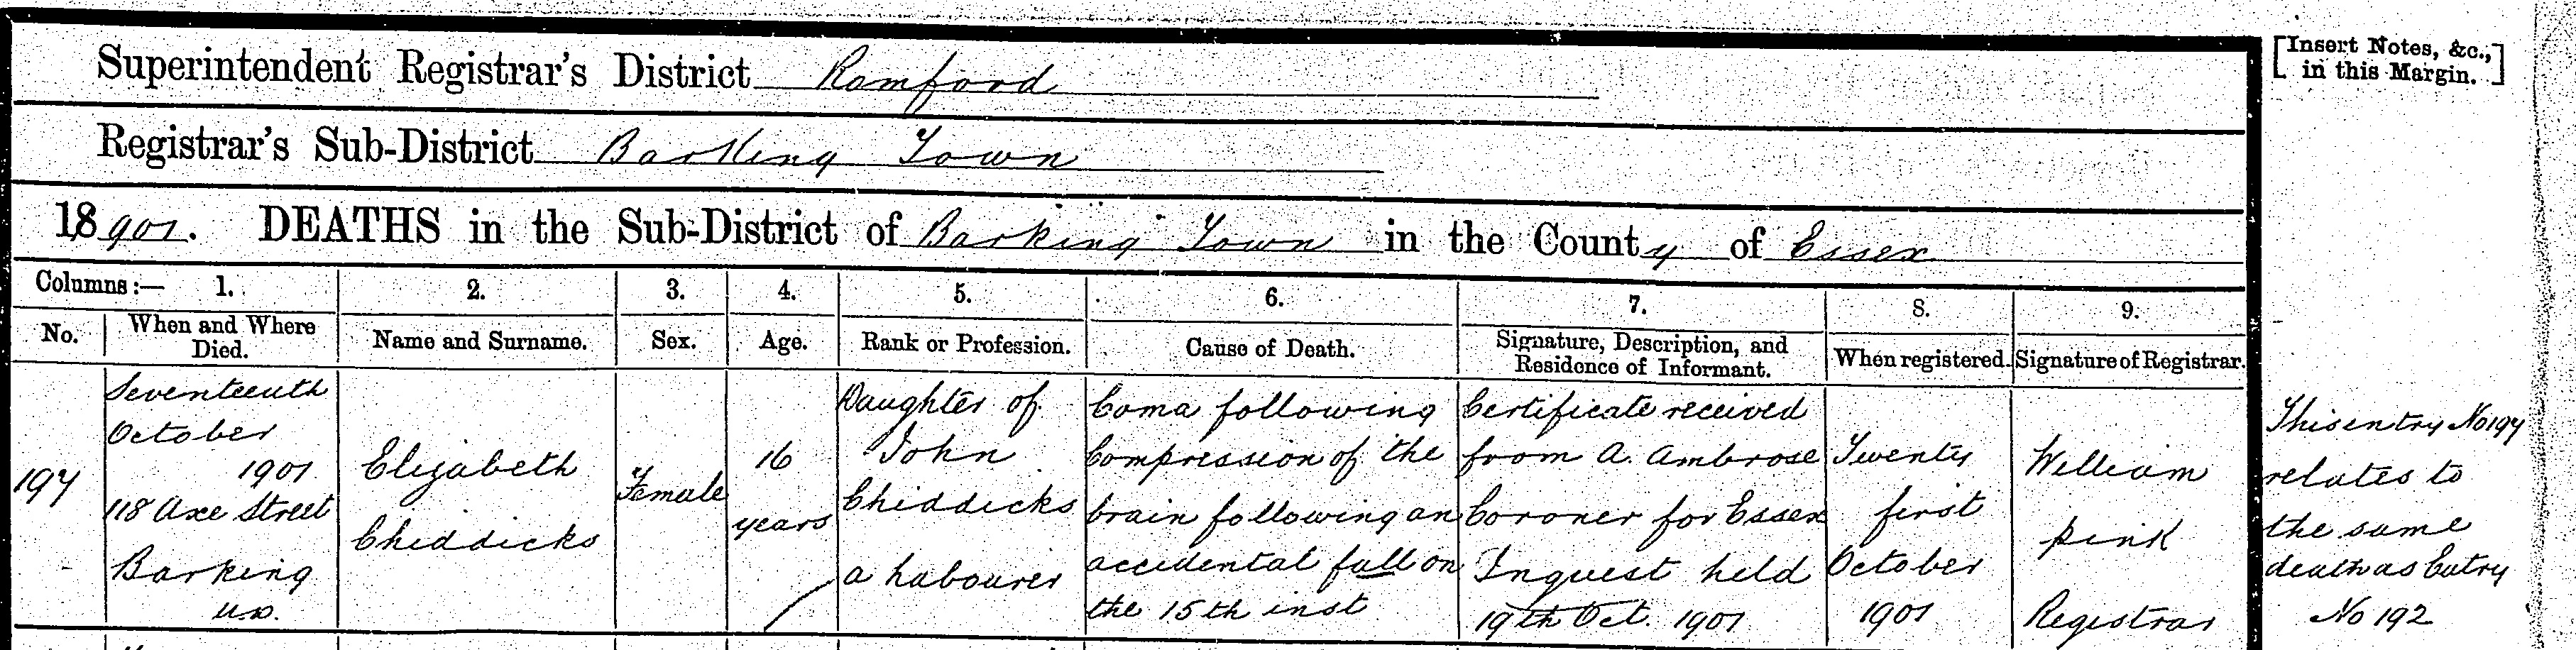 Superintendent Registrar's District Romford
[Insert Notes, &c., in this Margin.]
Registrar's Sub-District Barking Town
18901. DEATHS in the Sub-District of Barking Town in the County of Essex
Columns:— 1. 2. 3. 4. 5. 6. 7. 8. 9.
No. When and Where Died. Name and Surname. Sex. Age. Rank or Profession. Cause of Death. Signature, Description, and Residence of Informant. When registered. Signature of Registrar.
197
Seventeenth
October
1901
118 Axe Street
Barking
U.D.
Elizabeth
Chiddicks
Female
16
years
Daughter of
John
Chiddicks
a Labourer
Coma following
Compression of the
brain following an
accidental fall on
the 15th inst
Certificate received
from A. Ambrose
Coroner for Essex
Inquest held
19th Oct. 1901
Twenty
first
October
1901
William
Pink
Registrar
This entry No 197
relates to
the same
death as Entry
No 192